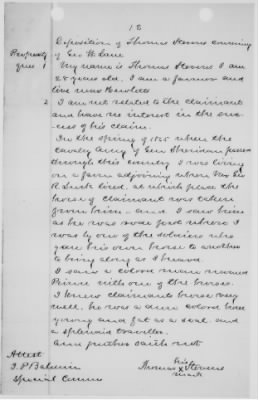 18
Deposition of Thomas Stevens concerning
of Geo W. Lane
Property
ques 1 My name is Thomas Stevens I am
28 years old. I am a farmer and
live near
2 I am not related to the claimant
and have no interest in the success
of his claim.
In the spring of 1865 when the
cavalry army of Gen Sheridan passed
through this country I was living
on a farm adjoining where
R. lived, at which place the
horse of claimant was taken
from him. and I saw him
as he was rode
by one of the soldiers who
gave his own horse to another
to bring along as I
I saw a colored man
with one of the horses.
I knew claimants horse very
well. he was a horse
young and fat as a seal and
a splendid traveller.
Ann further saith not
his
Thomas X Stevens
mark
Attest
Special Comm